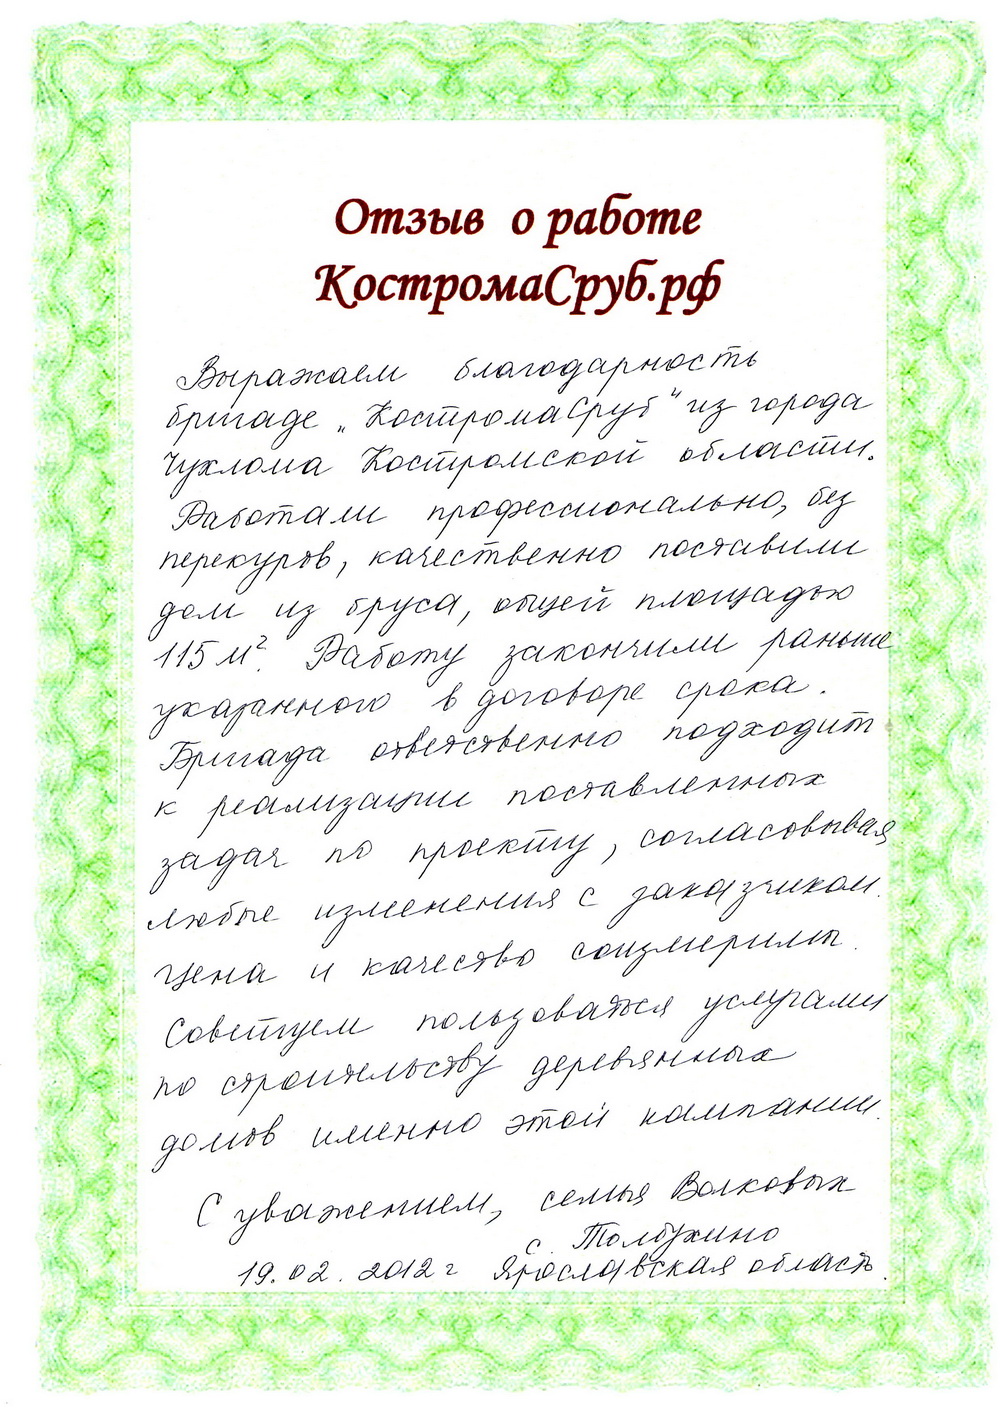 Отзыв о работе
КостромаСруб.рф
Выражаем благодарность
бригаде „КостромаСруб“ из города
Чухлома Костромской области.
Работали профессионально, без
перекуров, качественно поставили
дом из бруса, общей площадью
115 м². Работу закончили раньше
указанного в договоре срока.
Бригада ответственно подходит
к реализации поставленных
задач по проекту, согласовывая
любые изменения с заказчиком.
Цена и качество соизмеримы.
Советуем пользоваться услугами
по строительству деревянных
домов именно этой компании.
С уважением, семья Волковых
с. Толбухино
19.02.2012 г Ярославская область.